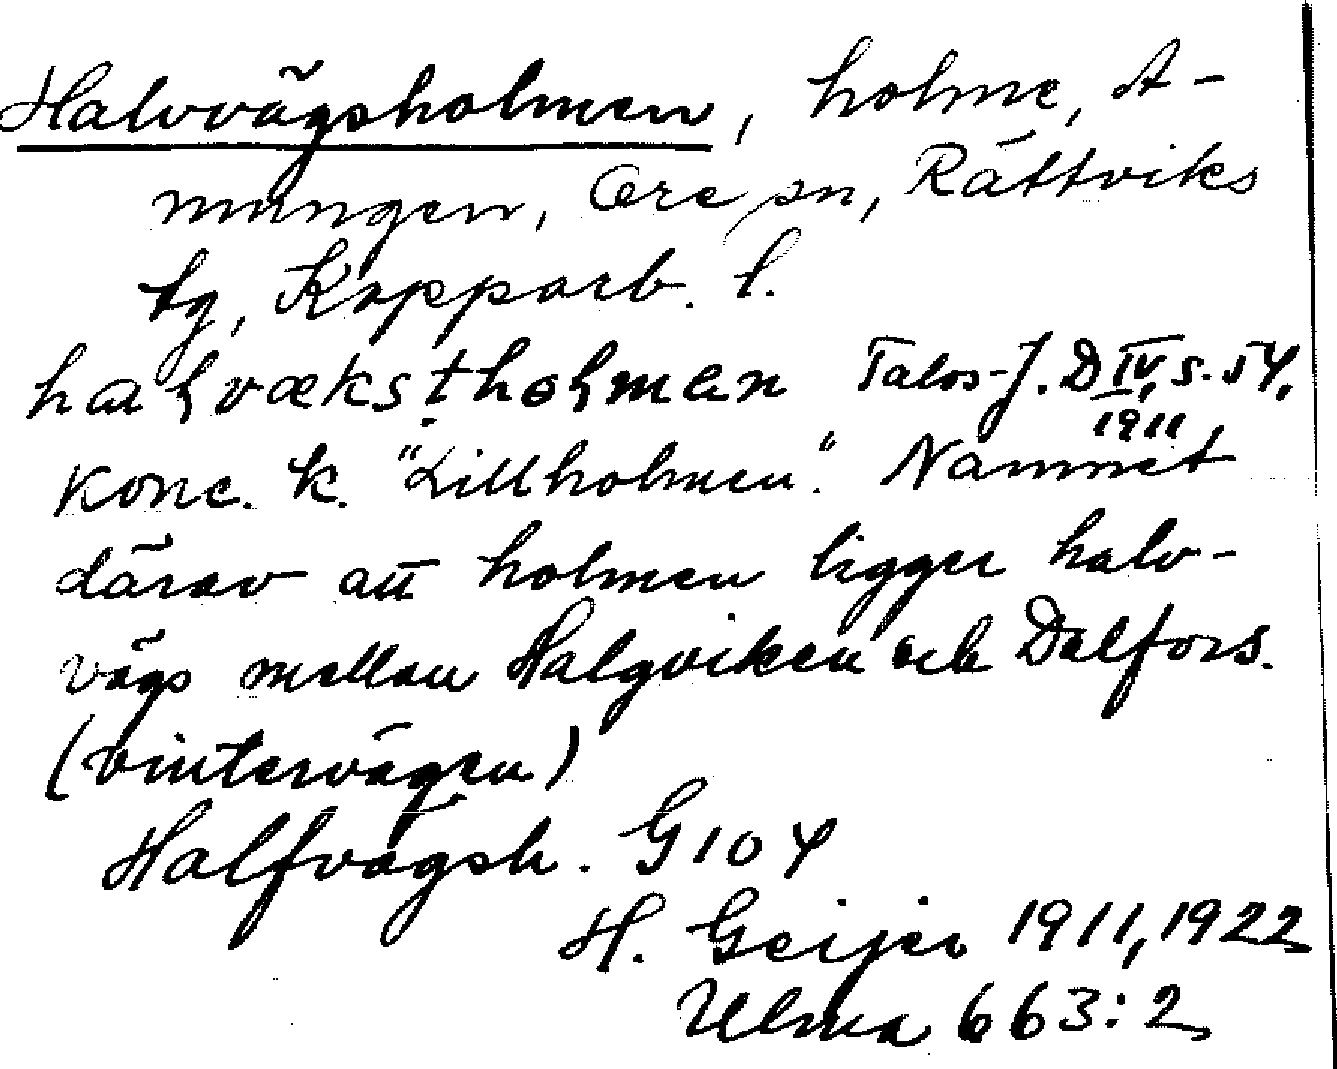 Halvvägsholmen, holme, A-
mungen, Ore sn, Rättviks
tg, Kopparb. l.
halvækstholmen Talos-J. D IV, s. 54,
1911
Konc. k. "Lillholmen". Namnet
därav att holmen ligger halv-
vägs mellan Halgviken och Dalfors.
(vintervägen)
Halfvägsh. G 104
H. Geijer 1911, 1922
Ulma 663:2